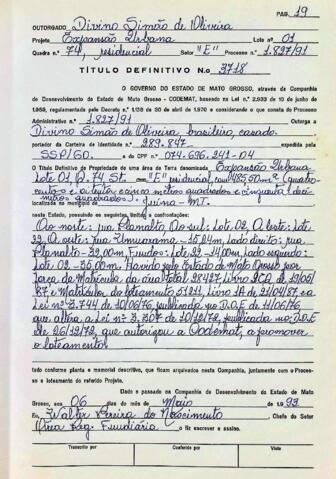 PAG. 19
OUTORGADO Divino Simão de Oliveira
Projeto Expansão Urbana Lote n.º 01
Quadra n.º 74, residencial Setor "E" Processo n.º 1.827/91
TÍTULO DEFINITIVO N.o 3718
O GOVERNO DO ESTADO DE MATO GROSSO, através da Companhia
de Desenvolvimento do Estado de Mato Grosso - CODEMAT, baseado na Lei n.º 2.939 de 10 de junho de
1969, regulamentada pelo Decreto n.º 1.128 de 20 de abril de 1970 e considerando o que consta do Processo
Administrativo n.º 1.827/91 outorga a
Divino Simão de Oliveira, brasileiro, casado.
portador da Carteira de Identidade n.º 289.847 expedida pela
SSP/GO. e do CPF n.º 074.696.241-04
O Título Definitivo de Propriedade de uma área de Terra denominada Expansão Urbana
Lote 01 Q. 74 St. "E" residencial, c/ 485,50m² (quatro
centos e oitenta e cinco metros quadrados e cinquenta decí
metros quadrados).
localizada no município de Juína - MT.
neste Estado, possuindo os seguintes limites e confrontações:
Ao norte: rua Planalto, Ao sul: Lote 02, A leste: Lote
22, A oeste: rua Umuarama - 15,04m, lado direito: rua
Planalto - 32,00m, Fundos: Lote 22 - 14,00m, lado esquerdo:
Lote 02 - 35,00m. Havido pelo Estado de Mato Grosso por
força da Matrícula da área total 28427, Livro 2CQ, de 19/05/
87, e Matrícula do loteamento 51211, Livro 1A de 21/04/87, e a
Lei nº 3.744 de 10/06/76, publicado no D.O.E de 11/06/76
que altera a Lei nº 3.307 de 10/12/72, publicada no D.O.E
de 26/12/72, que autorizou a Codemat, a promover
o loteamento.
tudo conforme planta e memorial descritivo, que ficam arquivados nesta Companhia, juntamente com o Proces-
so e loteamento do referido Projeto.
Dado e passado na Companhia de Desenvolvimento do Estado de Mato
Grosso, aos 06 dias do mês de Maio de 19 93
Eu, Walter Pereira do Nascimento, Chefe do Setor
Área Reg. Fundiária o fiz escrever e assino.
Transcrito por Conferido por Visto